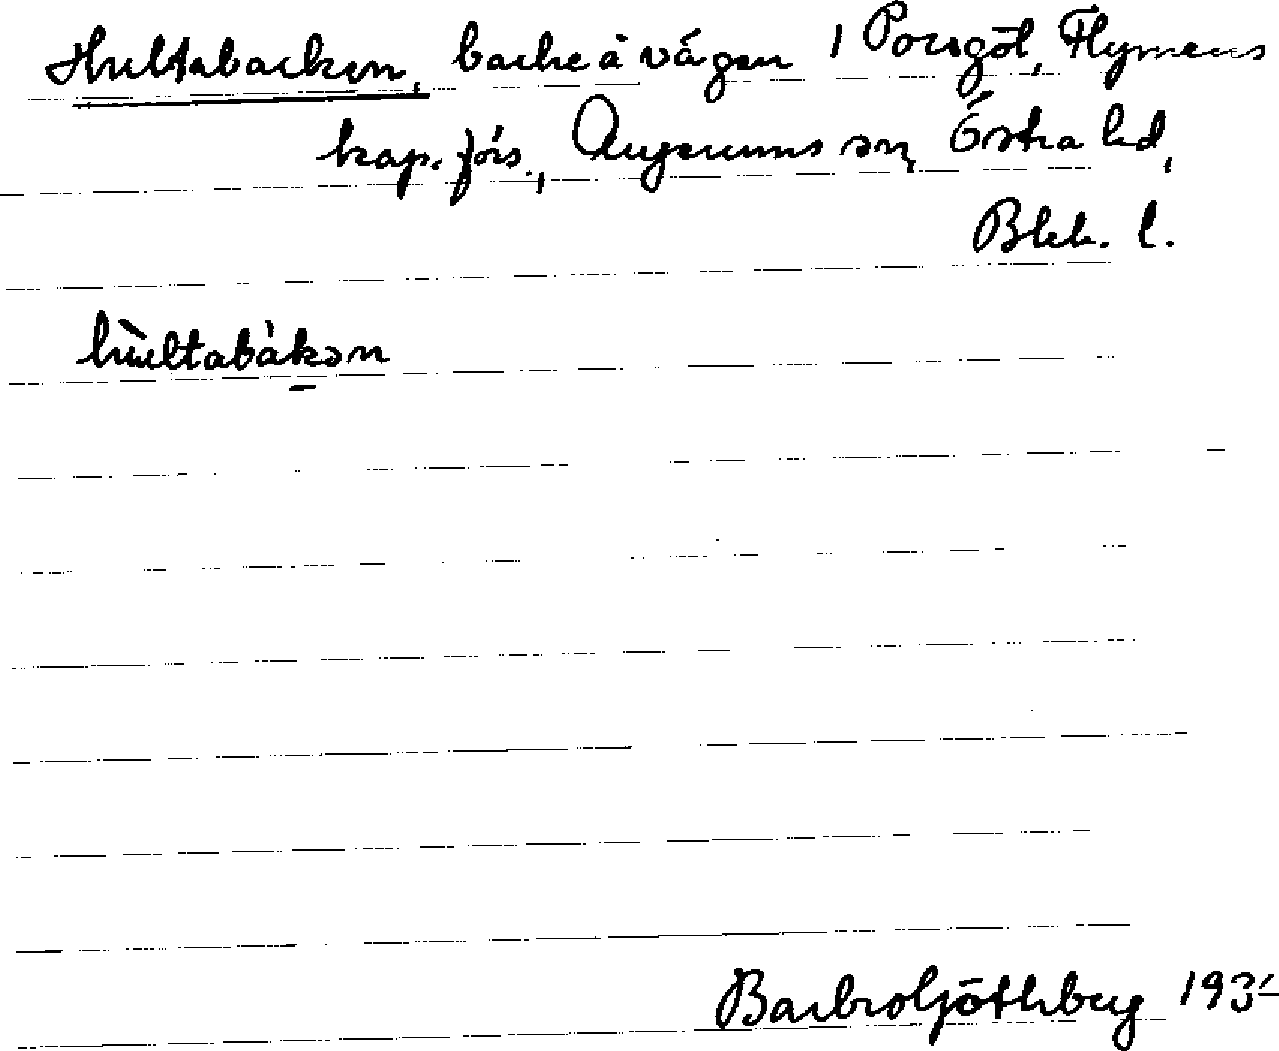 Hultabacken, backe å vägen i Porsgöl, Flymens
kap. förs., Augerums sn, Östra hd,
Blek. l.
Barbro Göthberg 193